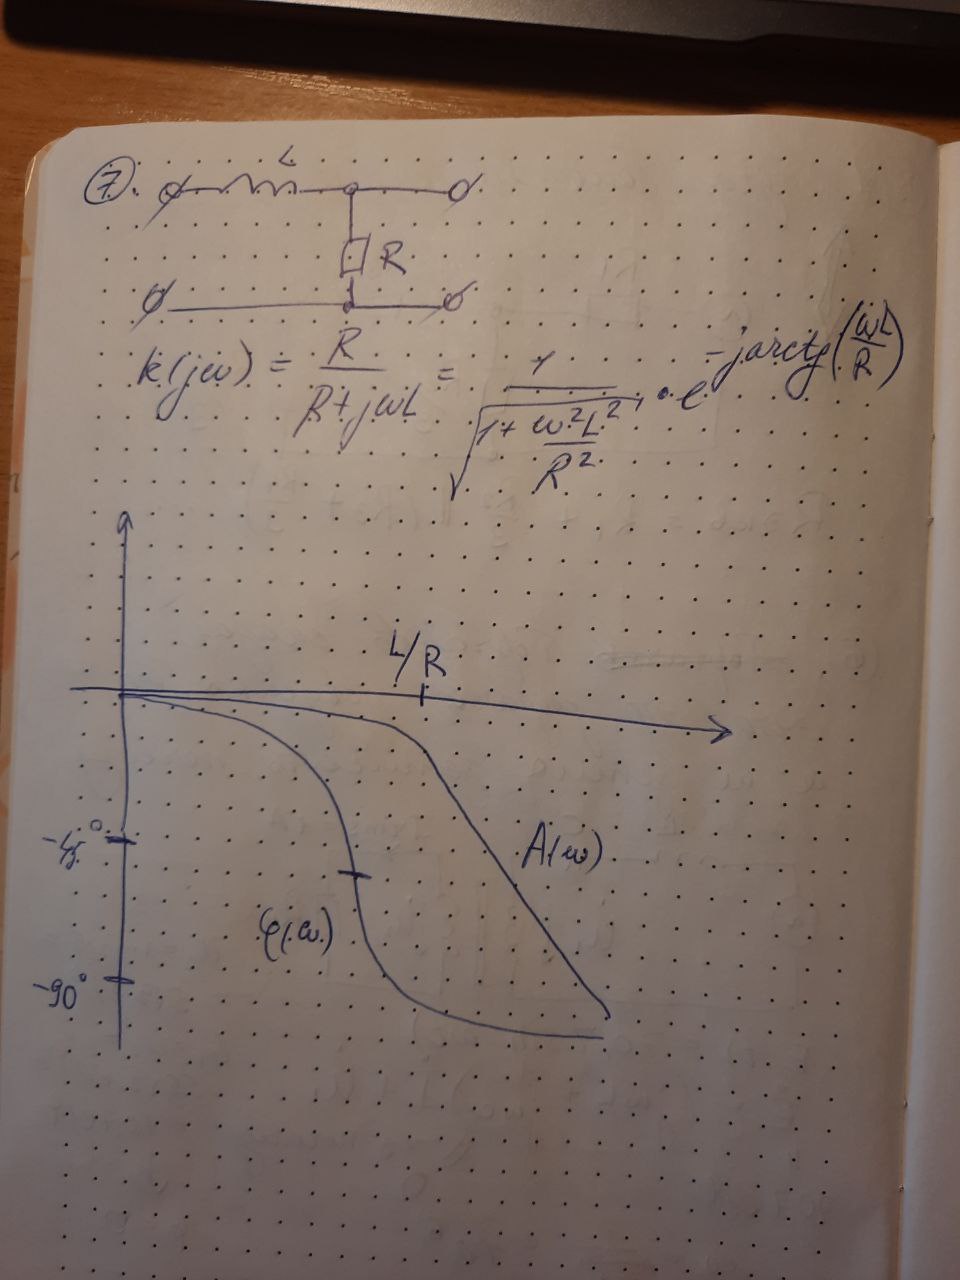 7
L
R
k(jω) = R / (R + jωL) = 1 / √(1 + ω²L² / R²) · e^(-j arctg(ωL / R))
L/R
-45°
A(ω)
φ(ω)
-90°